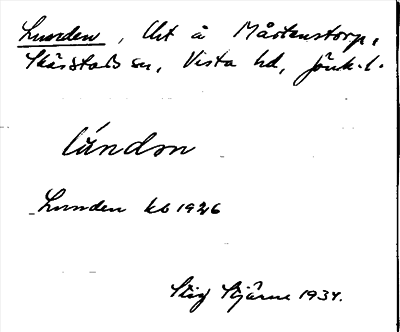 Lunden, Uht å Mårtenstorp,
Skärstads sn, Vista hd, Jönk. l.
lúndɷn
Lunden kb 1926
Stig Stjärne 1934.